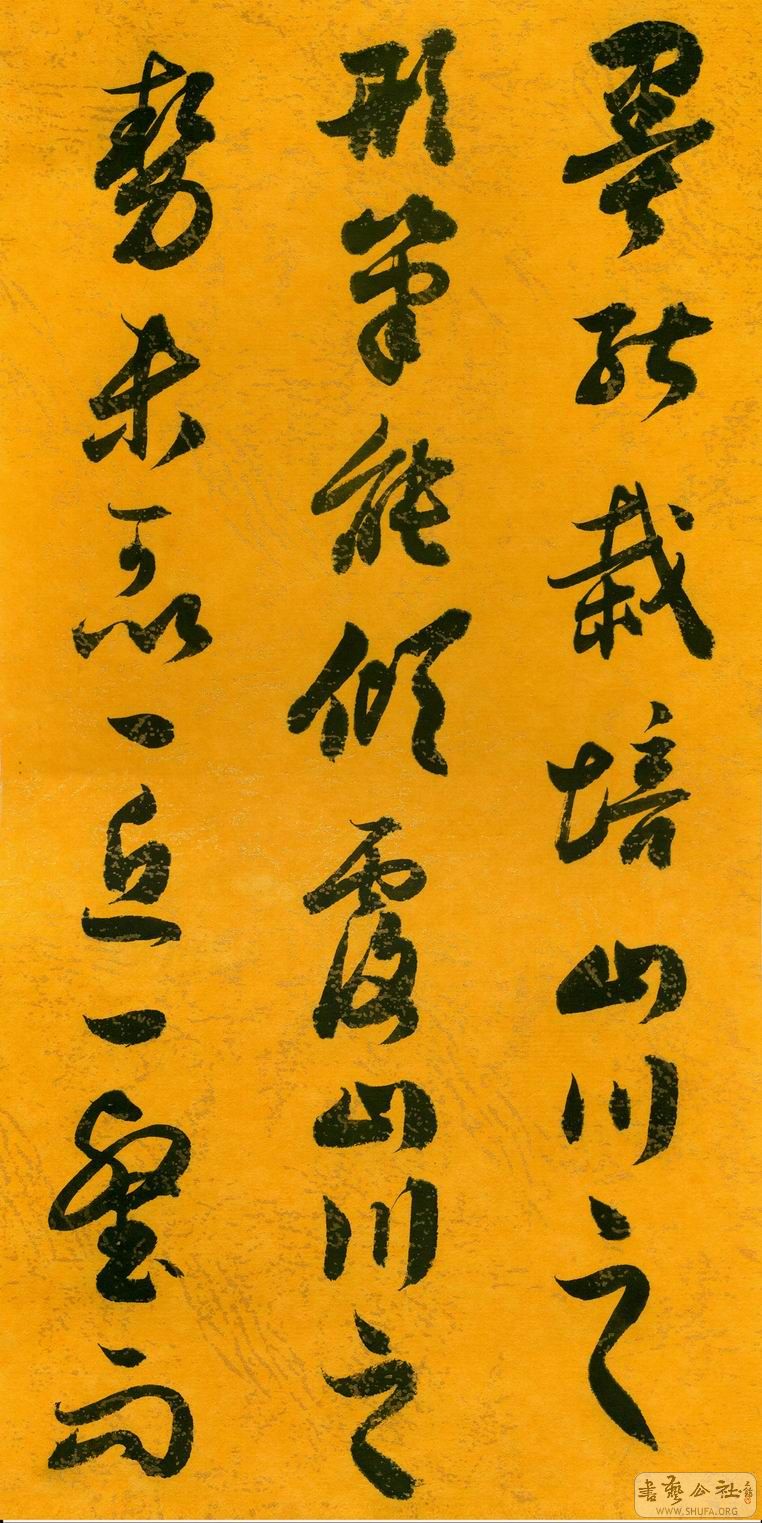 墨能栽培山川之
形筆能傾覆山川之
勢未可以一丘一壑而
書藝公社
WWW.SHUFA.ORG